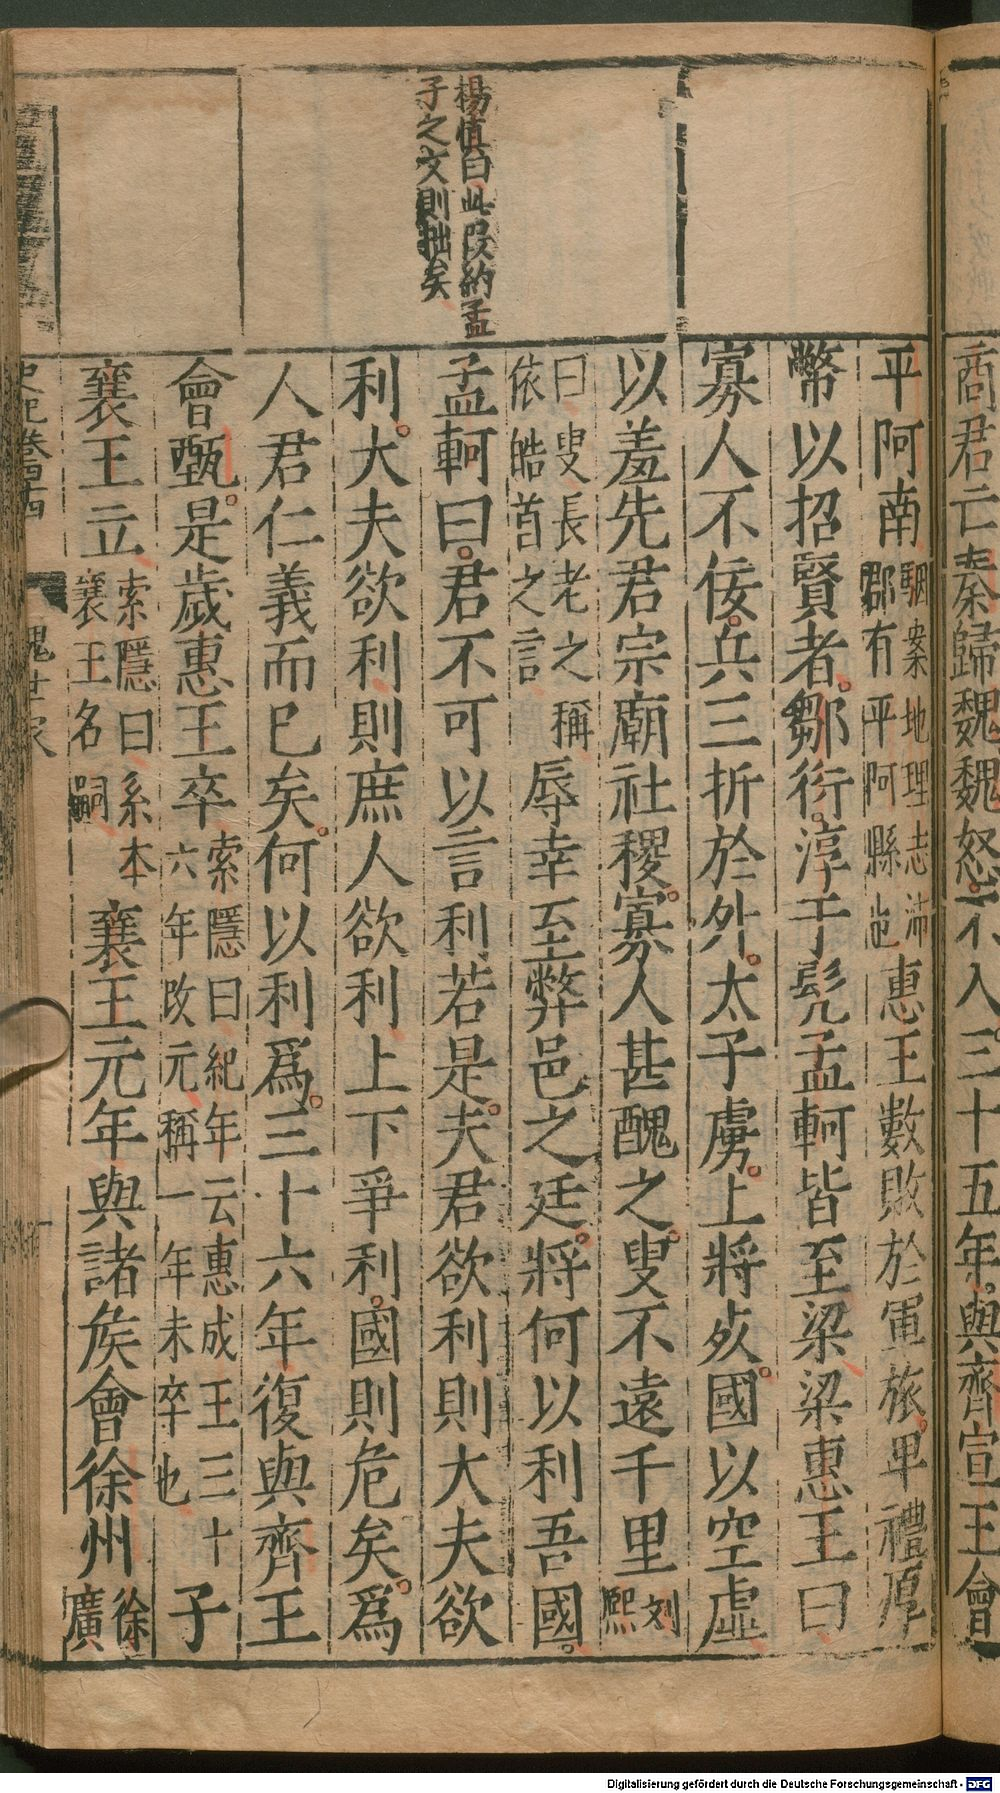 商君亡秦歸魏魏怒不入三十五年與齊宣王會
平阿南駰案地理志沛郡有平阿縣也惠王數敗於軍旅卑禮厚
幣以招賢者鄒衍淳于髡孟軻皆至梁梁惠王曰
寡人不佞兵三折於外太子虜上將死國以空虛
以羞先君宗廟社稷寡人甚醜之叟不遠千里刘熙
曰叟長老之稱依皓首之言辱幸至弊邑之廷將何以利吾國
孟軻曰君不可以言利若是夫君欲利則大夫欲
利大夫欲利則庶人欲利上下爭利國則危矣爲
人君仁義而已矣何以利爲三十六年復與齊王
會甄是歲惠王卒索隱曰紀年云惠成王三十六年改元稱一年未卒也子
襄王立索隱曰系本襄王名嗣襄王元年與諸矦會徐州徐廣
楊慎曰此段約孟
子之文則拙矣
史記卷四十四
魏世家
Digitalisierung gefördert durch die Deutsche Forschungsgemeinschaft - DFG